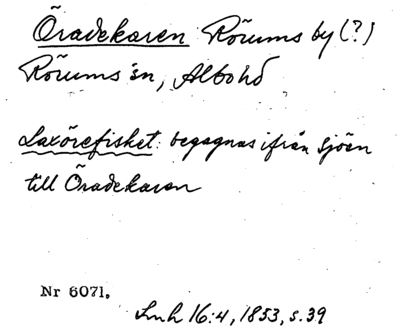 Öradekaren Rörums by (?)
Rörums sn, Albo hd
Laxörefisket: begagnas ifrån sjöen
till Öradekaren
Nr 6071.
Lmh 16:4, 1853, s. 39